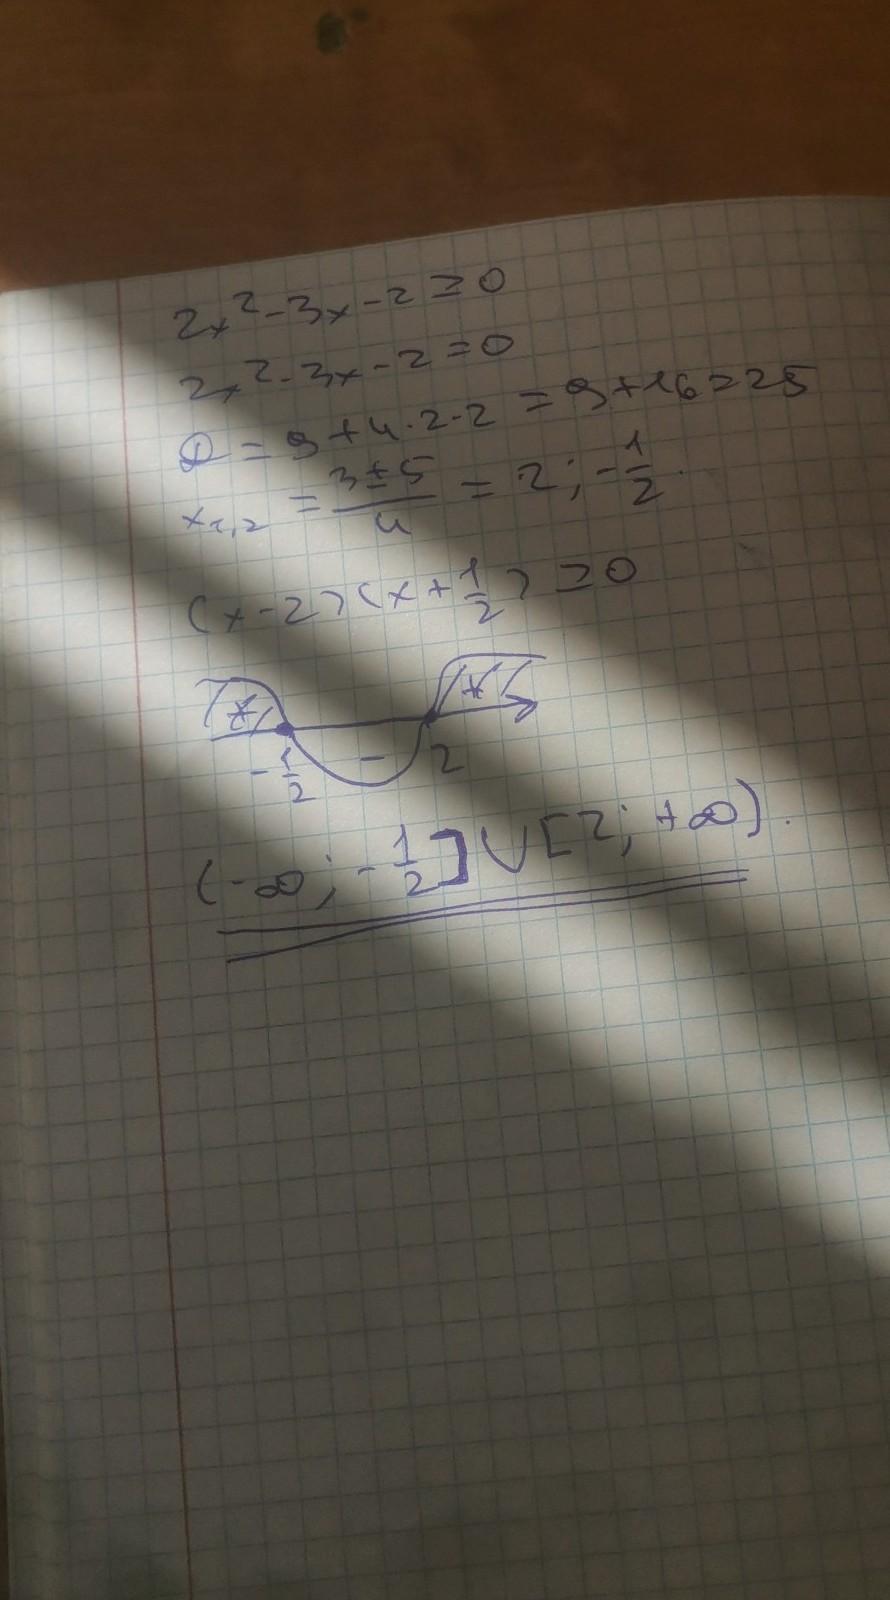 2x²-3x-2≥0
2x²-3x-2=0
D=9+4·2·2=9+16=25
x₁,₂=(3±5)/4=2;-1/2.
(x-2)(x+1/2)≥0
+ - +
-1/2 2
(-∞;-1/2]∪[2;+∞).